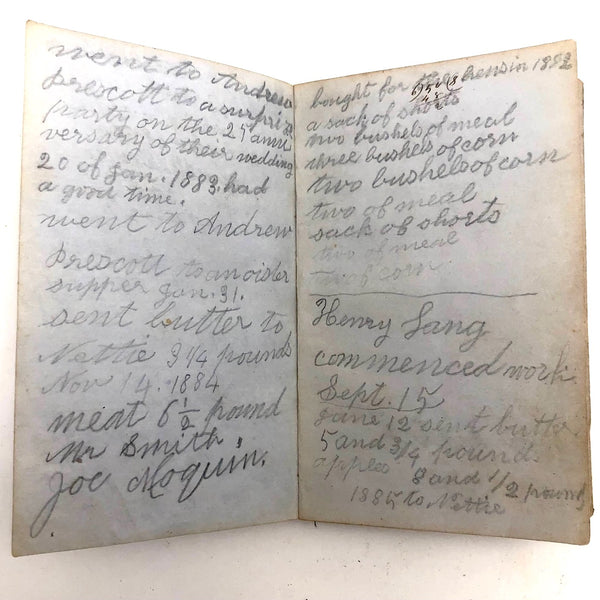 went to Andrew
Prescott to a surprize
party on the 25 anni
versary of their wedding
20 of Jan. 1883. had
a good time.
went to Andrew
Prescott to an oister
supper Jan. 31.
sent butter to
Nettie 3 1/4 pounds
Nov 14. 1884
meat 6 1/2 pound
Mr Smith
Joe Moquin.
bought for the hens in 1882
a sack of shorts
two bushels of meal
three bushels of corn
two bushels of corn
two of meal
sack of shorts
two of meal
two of corn
Henry Lang
commenced work
Sept. 15
June 12 sent butter
5 and 3/4 pound.
apples 8 and 1/2 pounds
1885 to Nettie